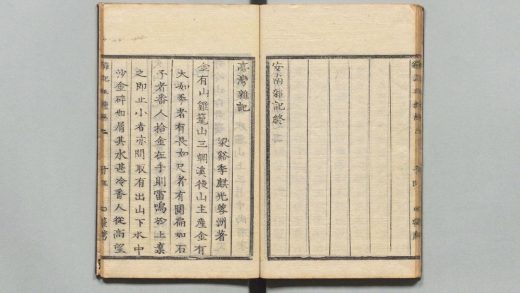 安南雜記終
臺灣雜記
梁谿季麒光蓉洲著
金有山雞籠山三朝溪後山主産金有
大如拳者有長如尺者有圓扁如石
子者番人拾金在手則雷鳴於上棄
之即止小者亦間取有出山下水中
沙金碎如屑其水甚冷番人從高望